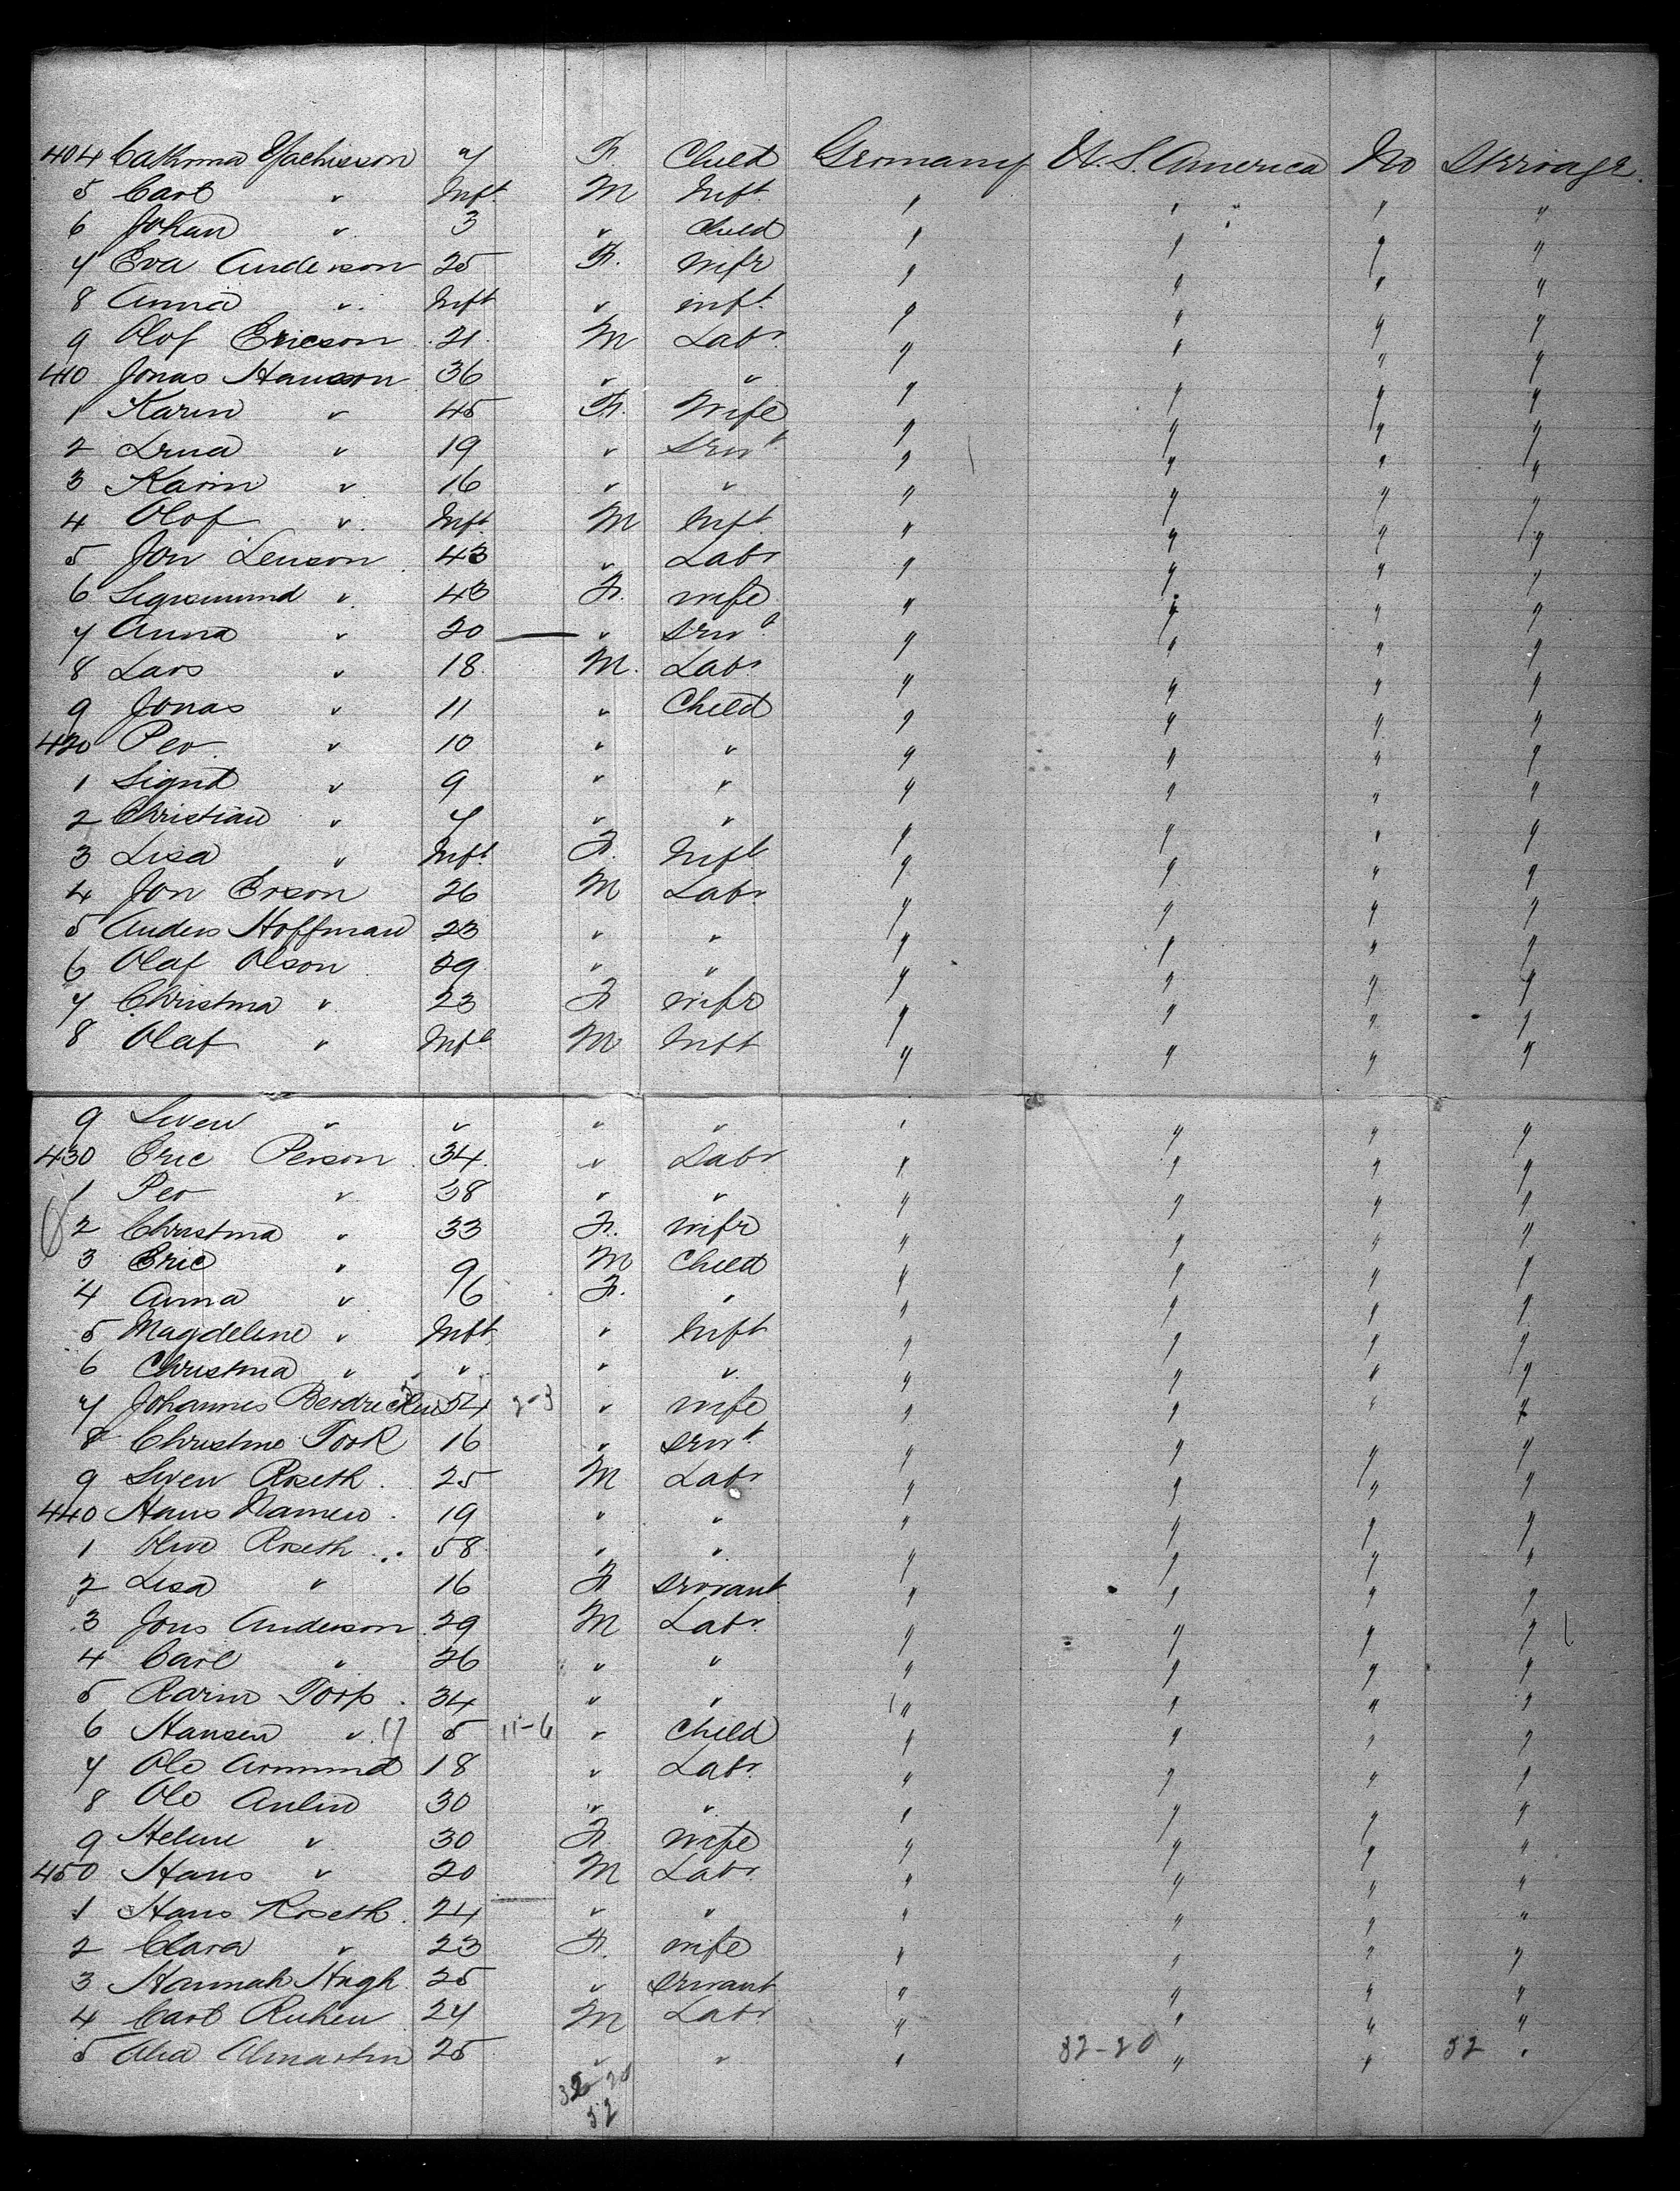 404 Cathrina 7 F. Child Germany U. S. America No Steerage.
5 Carl " Inft. M Inft. " " " "
6 Johan " 3 " Child " " " "
7 Eva Anderson 25 F. wife " " " "
8 Anna " Inft " inft. " " " "
9 Olof Ericson 21 M Labr. " " " "
410 Jonas Hanson 36 " " " " " "
1 Karin " 45 F. Wife " " " "
2 " 19 " Servt " " " "
3 Karin " 16 " " " " " "
4 Olof " Inft M Inft " " " "
5 Jon Lenson 43 " Labr " " " "
6 Sigismund " 43 F. wife " " " "
7 Anna " 20 " Servt " " " "
8 Lars " 18 M. Labr " " " "
9 Jonas " 11 " Child " " " "
420 Per " 10 " " " " " "
1 Sigrid " 9 " " " " " "
2 Christian " 7 " " " " " "
3 Lisa " Inft F. Inft " " " "
4 Jon Erson 26 M Labr " " " "
5 Anders Hoffman 23 " " " " " "
6 Olaf Olson 29 " " " " " "
7 Christina " 23 F wife " " " "
8 Olaf " Inft M Inft " " " "
9 Swen " " " " " " " "
430 Eric Person 34 " Labr " " " "
1 Per " 38 " " " " " "
2 Christina " 33 F. wife " " " "
3 Eric " 9 M Child " " " "
4 Anna " 6 F. " " " " "
5 Magdeline " Inft " Inft " " " "
6 Christina " " " " " " " "
7 Johannes 54 " wife " " " "
8 Christine Tork 16 " Servt " " " "
9 Swen Roseth 25 M Labr " " " "
440 Hans 19 " " " " " "
1 Roseth 58 " " " " " "
2 Lisa " 16 F servant " " " "
3 Jons Anderson 29 M Labr " " " "
4 Carl " 26 " " " " " "
5 Karin Torp 34 " " " " " "
6 Hansen " 5 11-6 " Child " " " "
7 Ole 18 " Labr " " " "
8 Ole Anlin 30 " " " " " "
9 Helene " 30 F. wife " " " "
450 Hans " 20 M Labr " " " "
1 Hans Roseth 24 " " " " " "
2 Clara " 23 F. wife " " " "
3 Hannah Hugh 25 " servant " " " "
4 Carl Ruhen 24 M Labr " " " "
5 25 " " " 32-20 " " 52 "
32 20
52